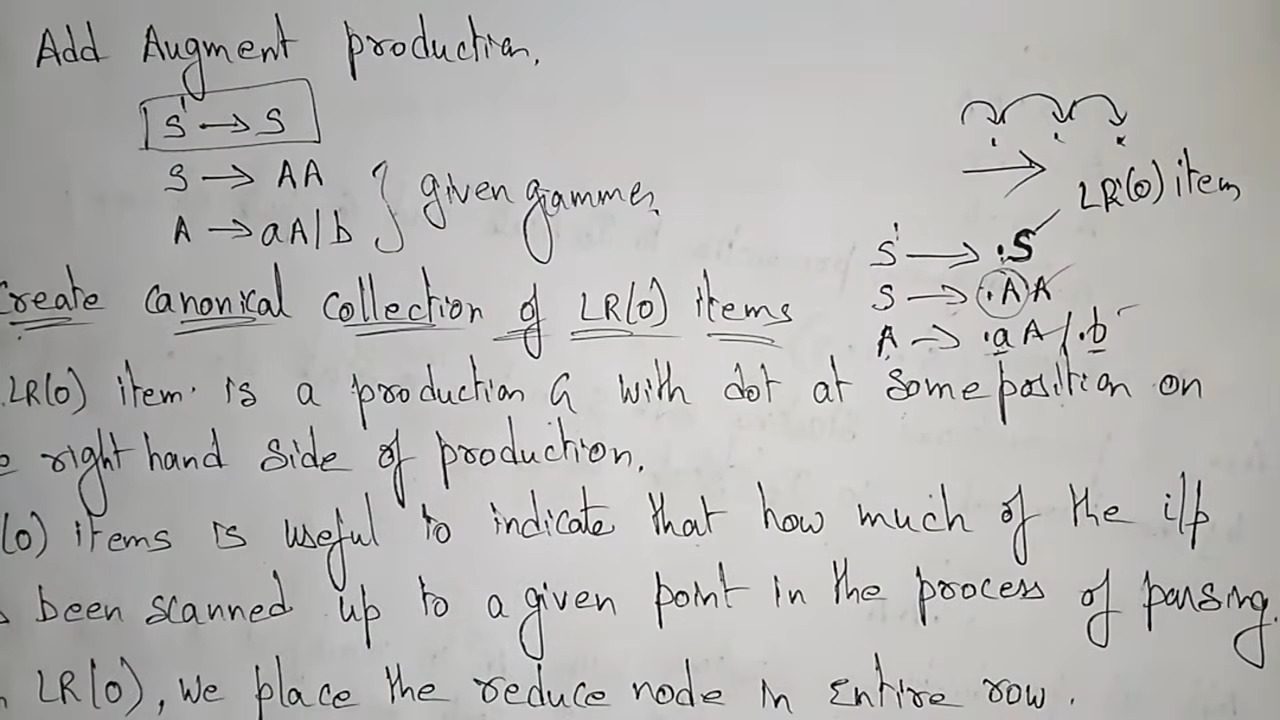 Add Augment production.
S' → S
S → AA
A → aA/b
} given grammer
LR(0) item
S' → .S
S → .AA
A → .aA/.b
Create canonical collection of LR(0) items
LR(0) item is a production G with dot at some position on
right hand side of production.
(0) items is useful to indicate that how much of the i/p
been scanned up to a given point in the process of parsing.
LR(0), we place the reduce node in entire row.